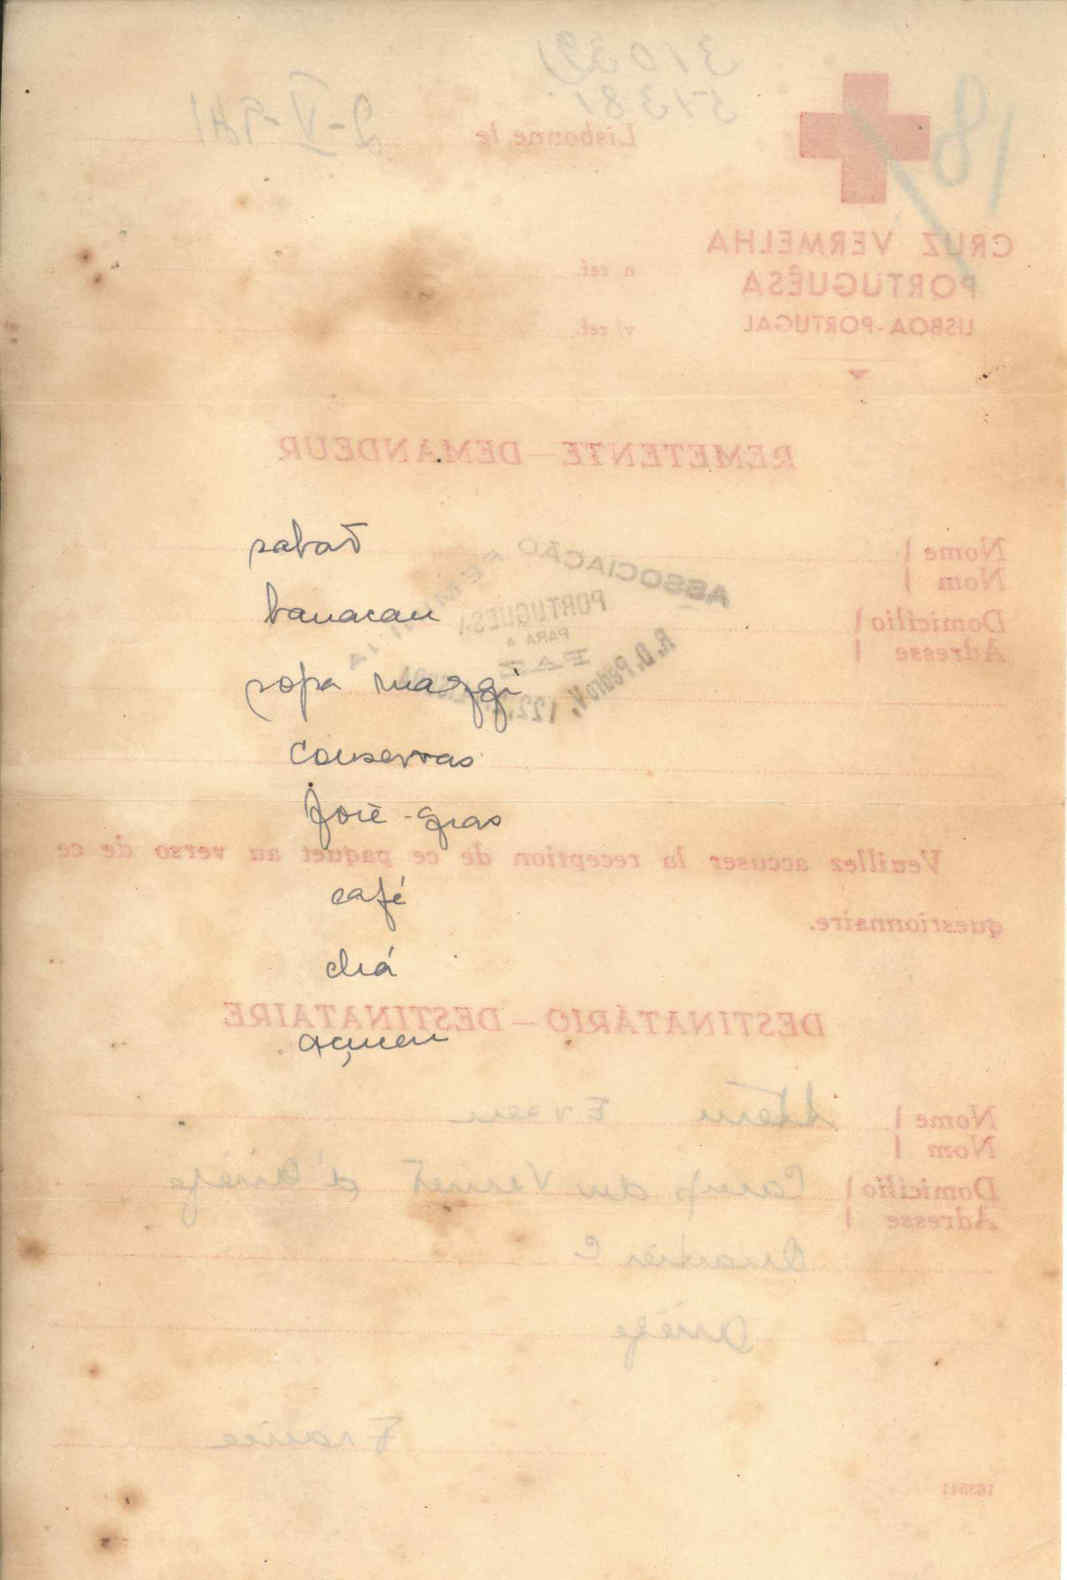 31039
51381
18
Lisbonne le 2-V-941
CRUZ VERMELHA
PORTUGUÊSA
LISBOA-PORTUGAL
n ref.
v/ ref.
REMETENTE – DEMANDEUR
sabaõ
Nome
Nom
ASSOCIAÇÃO
PORTUGUESA
PARA A
PAZ
R. D. Pedro V, 122,
banacau
Domicílio
Adresse
sopa maggi
conservas
foie-gras
Veuillez accuser la reception de ce paquet au verso de ce
questionnaire.
café
chá
DESTINATÁRIO – DESTINATAIRE
açucar
Nome
Nom
Domicílio Camp du Vernet d'Ariège
Adresse
Quartier C
Ariège
France